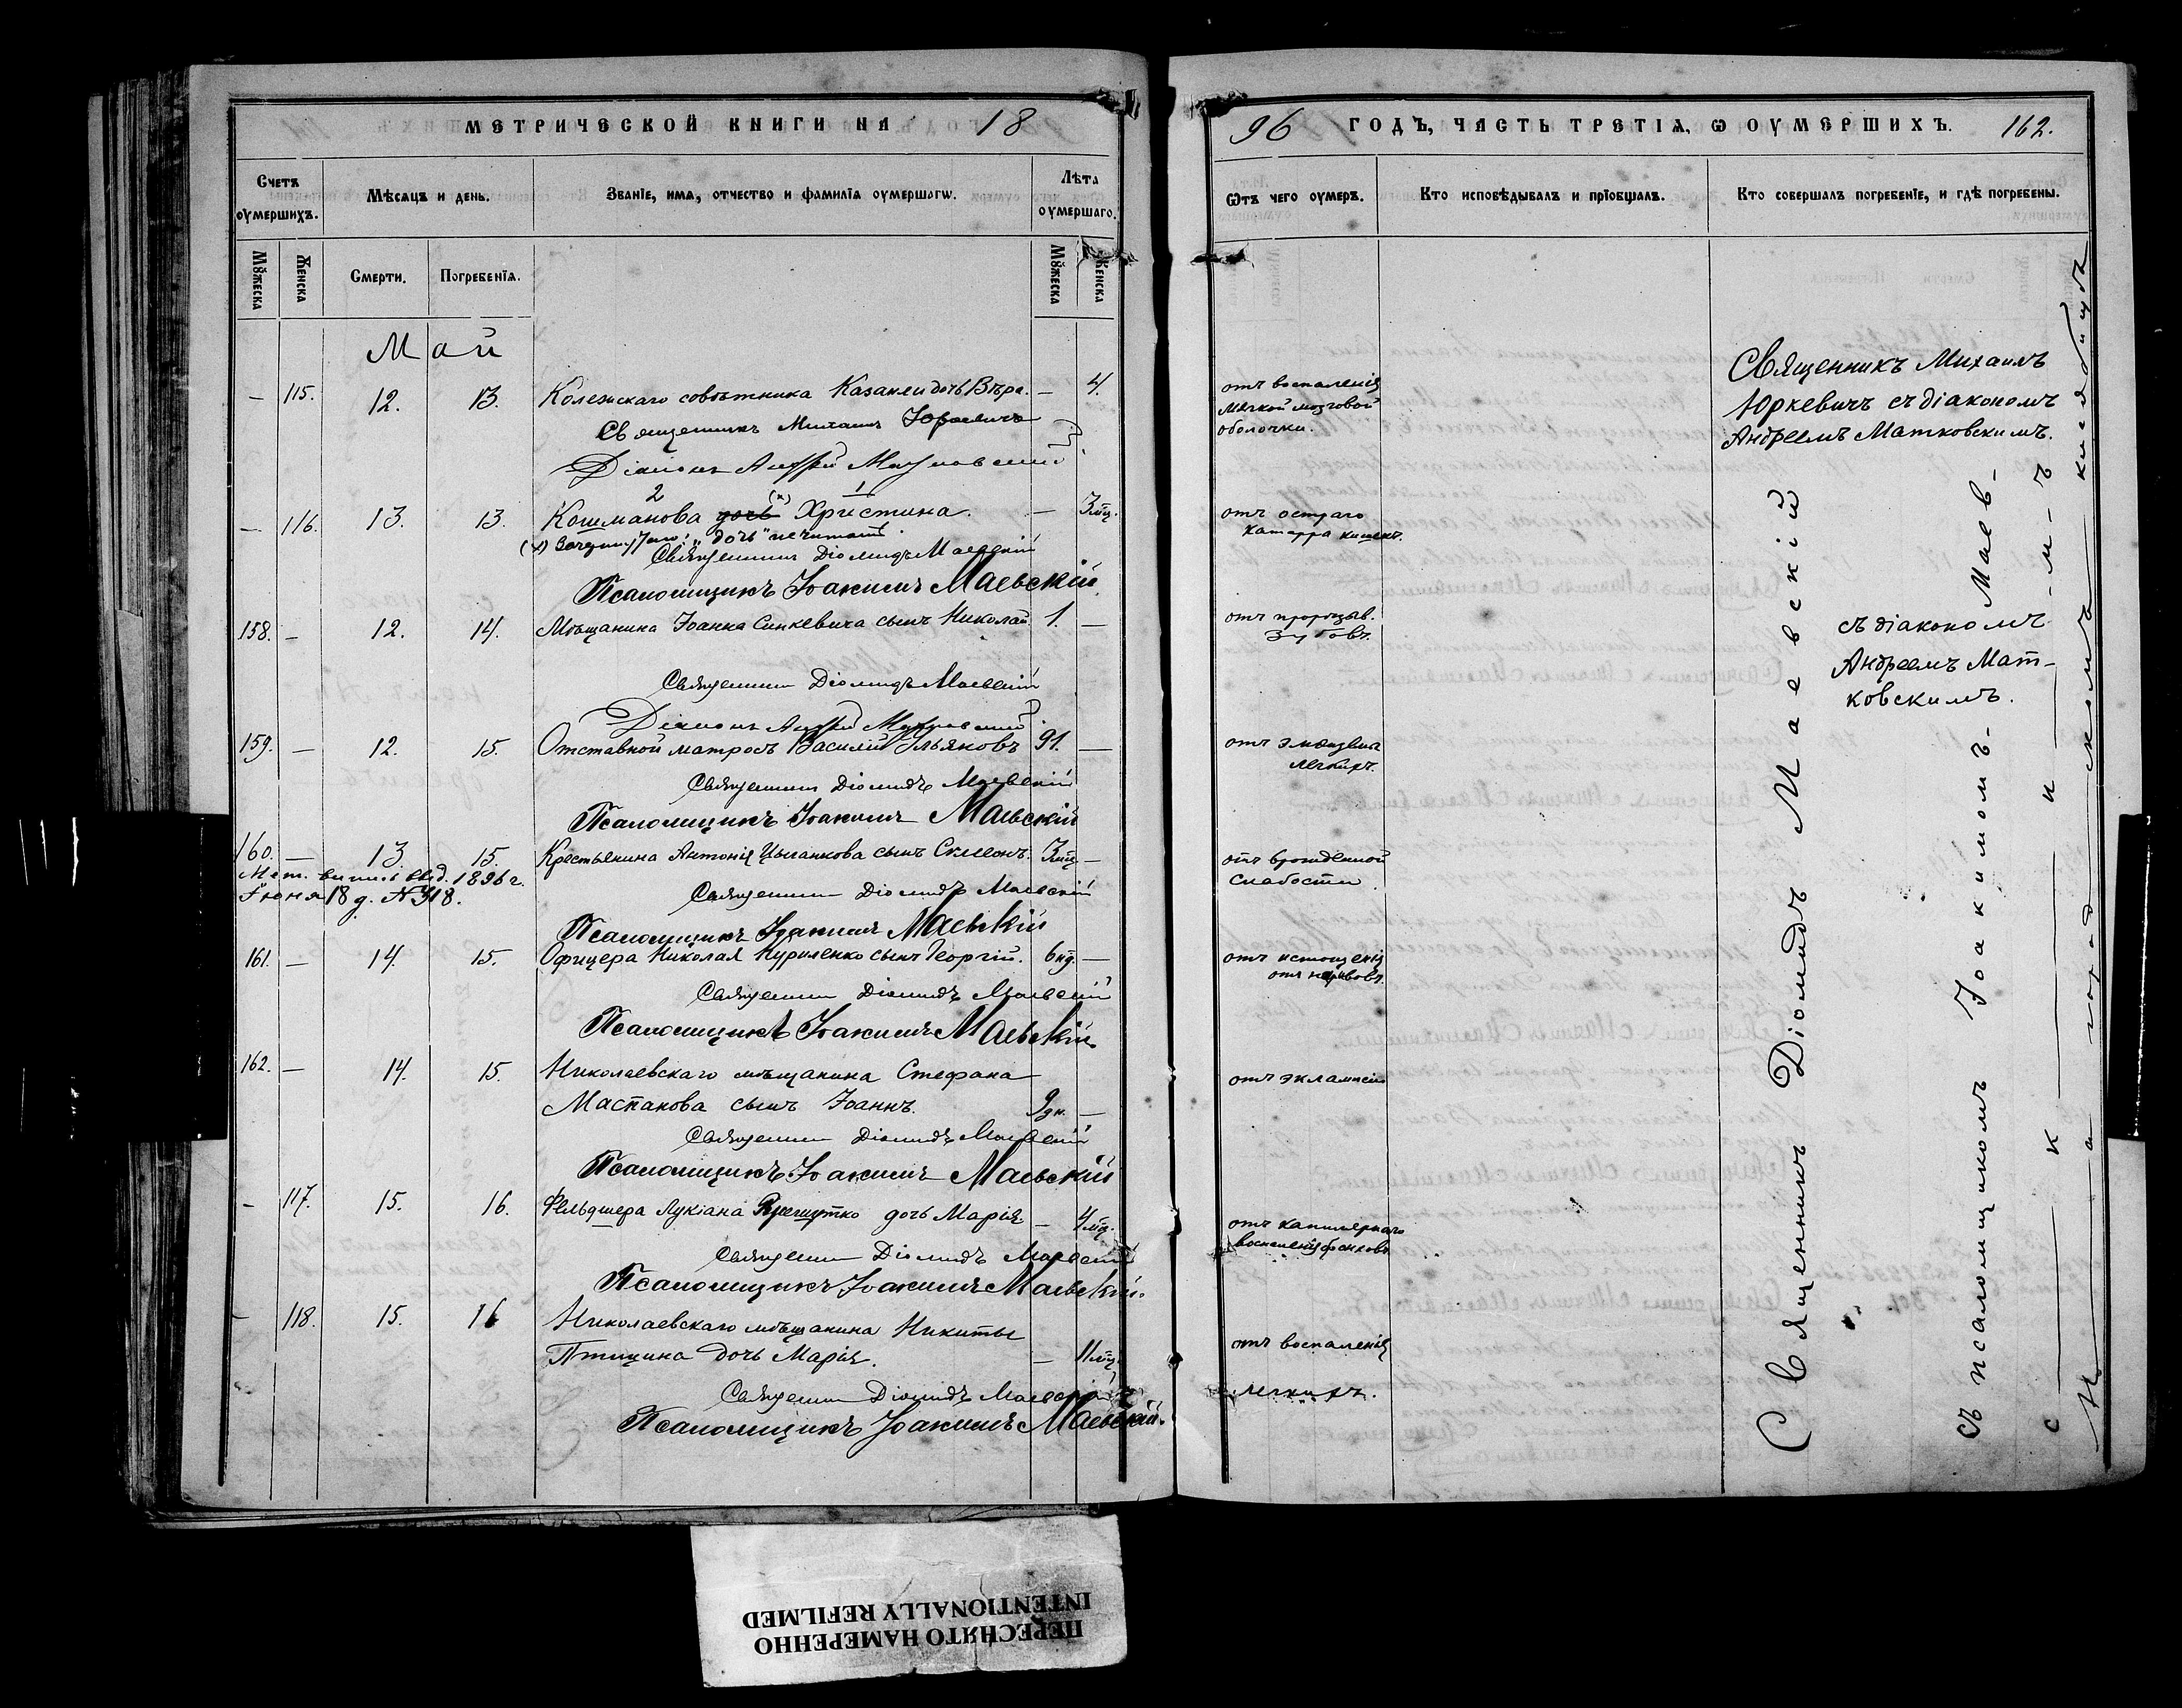 МЕТРИЧЕСКОЙ КНИГИ НА 18
Счетъ оумершихъ.
Мѣсяцъ и день.
Званіе, имя, отчество и фамилія оумершагѡ.
Лѣта оумершаго.
Мꙋжеска
Женска
Смерти.
Погребенїя.
Мꙋжеска
Женска
Май
— 115. 12. 13. Колежскаго совѣтника Казакли дочь Вѣра. — 4.
Священникъ Михаилъ Юркевичъ
Діаконъ Андрей Матковскій
2 (x) 1
— 116. 13. 13. Кошманова дочь Христина. — 3 мц.
(x) Зачеркнутаго: „дочь" не читать.
Священникъ Діомидъ Маевскій
Псаломщикъ Іоакимъ Маевскій.
158. — 12. 14. Мѣщанина Іоанна Синкевича сынъ Николай 1. —
Священникъ Діомидъ Маевскій
Діаконъ Андрей Матковскій
159. — 12. 15. Отставной матросъ Василій Ильяковъ 91. —
Священникъ Діомидъ Маевскій
Псаломщикъ Іоакимъ Маевскій
160. — 13. 15. Крестьянина Антонія Цыганкова сынъ Симеонъ. 3 мц —
Мет. выпись выд. 1896 г.
Іюня 18 д. № 318.
Священникъ Діомидъ Маевскій
Псаломщикъ Іоакимъ Маевскій
161. — 14. 15. Офицера Николая Куриленко сынъ Георгій. 6 нд. —
Священникъ Діомидъ Маевскій
Псаломщикъ Іоакимъ Маевскій.
162. — 14. 15. Николаевскаго мѣщанина Стефана
Маспанова сынъ Іоаннъ. 9 дн. —
Священникъ Діомидъ Маевскій
Псаломщикъ Іоакимъ Маевскій
- 117. 15. 16. Фельдшера Лукіана дочь Марія — 4 мц.
Священникъ Діомидъ Маевскій
Псаломщикъ Іоакимъ Маевскій.
- 118. 15. 16 Николаевскаго мѣщанина Никиты
Птицина дочь Марія. — 11 мц.
Священникъ Діомидъ Маевскій
Псаломщикъ Іоакимъ Маевскій.
96 ГОДЪ, ЧАСТЬ ТРЕТІЯ, Ѡ ОУМЕРШИХЪ. 162.
Ѿтъ чего оумеръ.
Кто исповѣдывалъ и прїобщалъ.
Кто совершалъ погребенїе, и гдѣ погребены.
отъ воспаленія
мягкой мозговой
оболочки.
Священникъ Михаилъ
Юркевичъ съ діакономъ
Андреемъ Матковскимъ.
отъ остраго
катарра кишекъ.
отъ прорѣзыв.
зубовъ.
съ діакономъ
Андреемъ Мат-
ковскимъ.
отъ эмфиземы
легкихъ.
отъ врожденной
слабости.
отъ истощенія
отъ нарывовъ.
отъ экламсіи
отъ капилярнаго
воспаленія бронховъ.
отъ воспаленія
легкихъ.
Священникъ Діомидъ Маевскій
съ псаломщикомъ Іоакимомъ Маев-
скимъ
На городскомъ кладбищѣ
ПЕРЕСНЯТО НАМЕРЕННО
INTENTIONALLY REFILMED